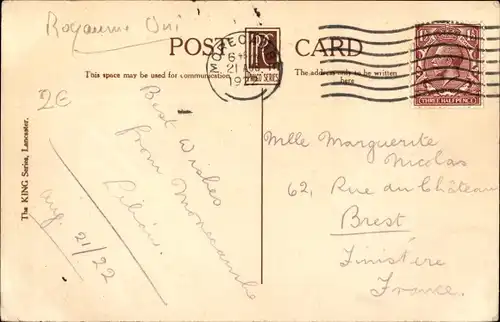 Royaume Uni
POST CARD
MORECAMBE
21
1922
THREE HALFPENCE
This space may be used for communication
The address only to be written
here
2€
The KING Series, Lancaster.
Best Wishes
from Morecambe
Lilian.
Aug. 21/22
Mlle Marguerite
Nicolas
62, Rue du Château
Brest
Finistère
France.